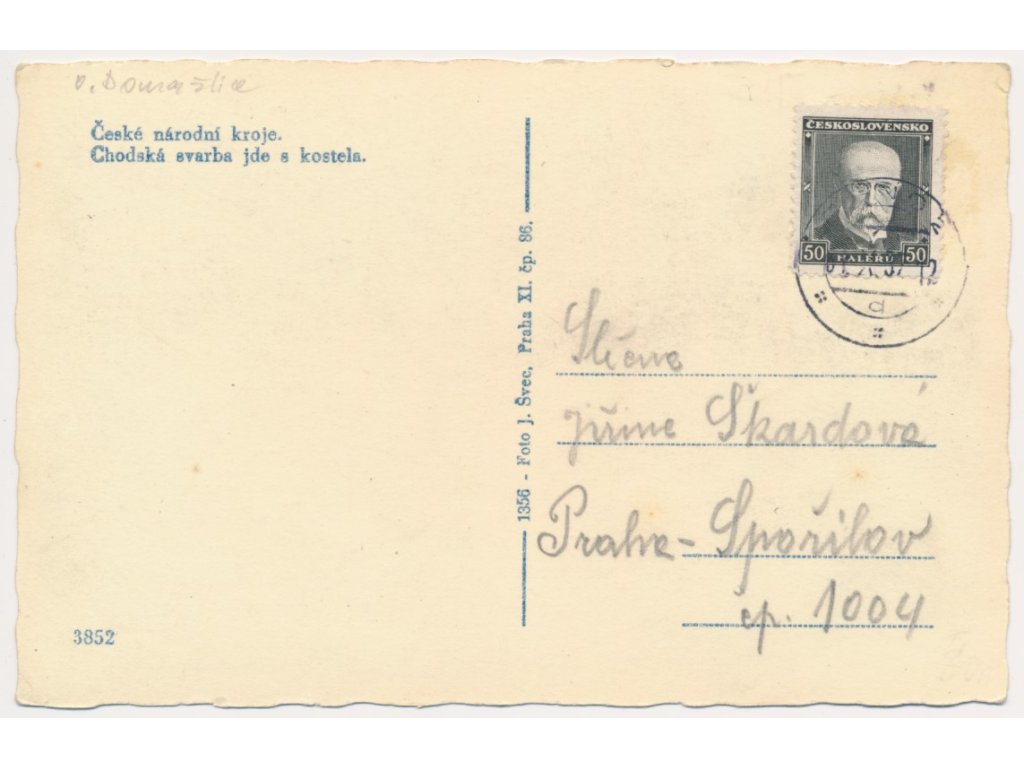 o. Domažlice
České národní kroje.
Chodská svarba jde s kostela.
ČESKOSLOVENSKO
50 HALÉŘŮ 50
d
1356 - Foto J. Švec, Praha XI. čp. 86.
Slečna
Jiřina Škardová
Praha - Spořilov
čp. 1004
3852